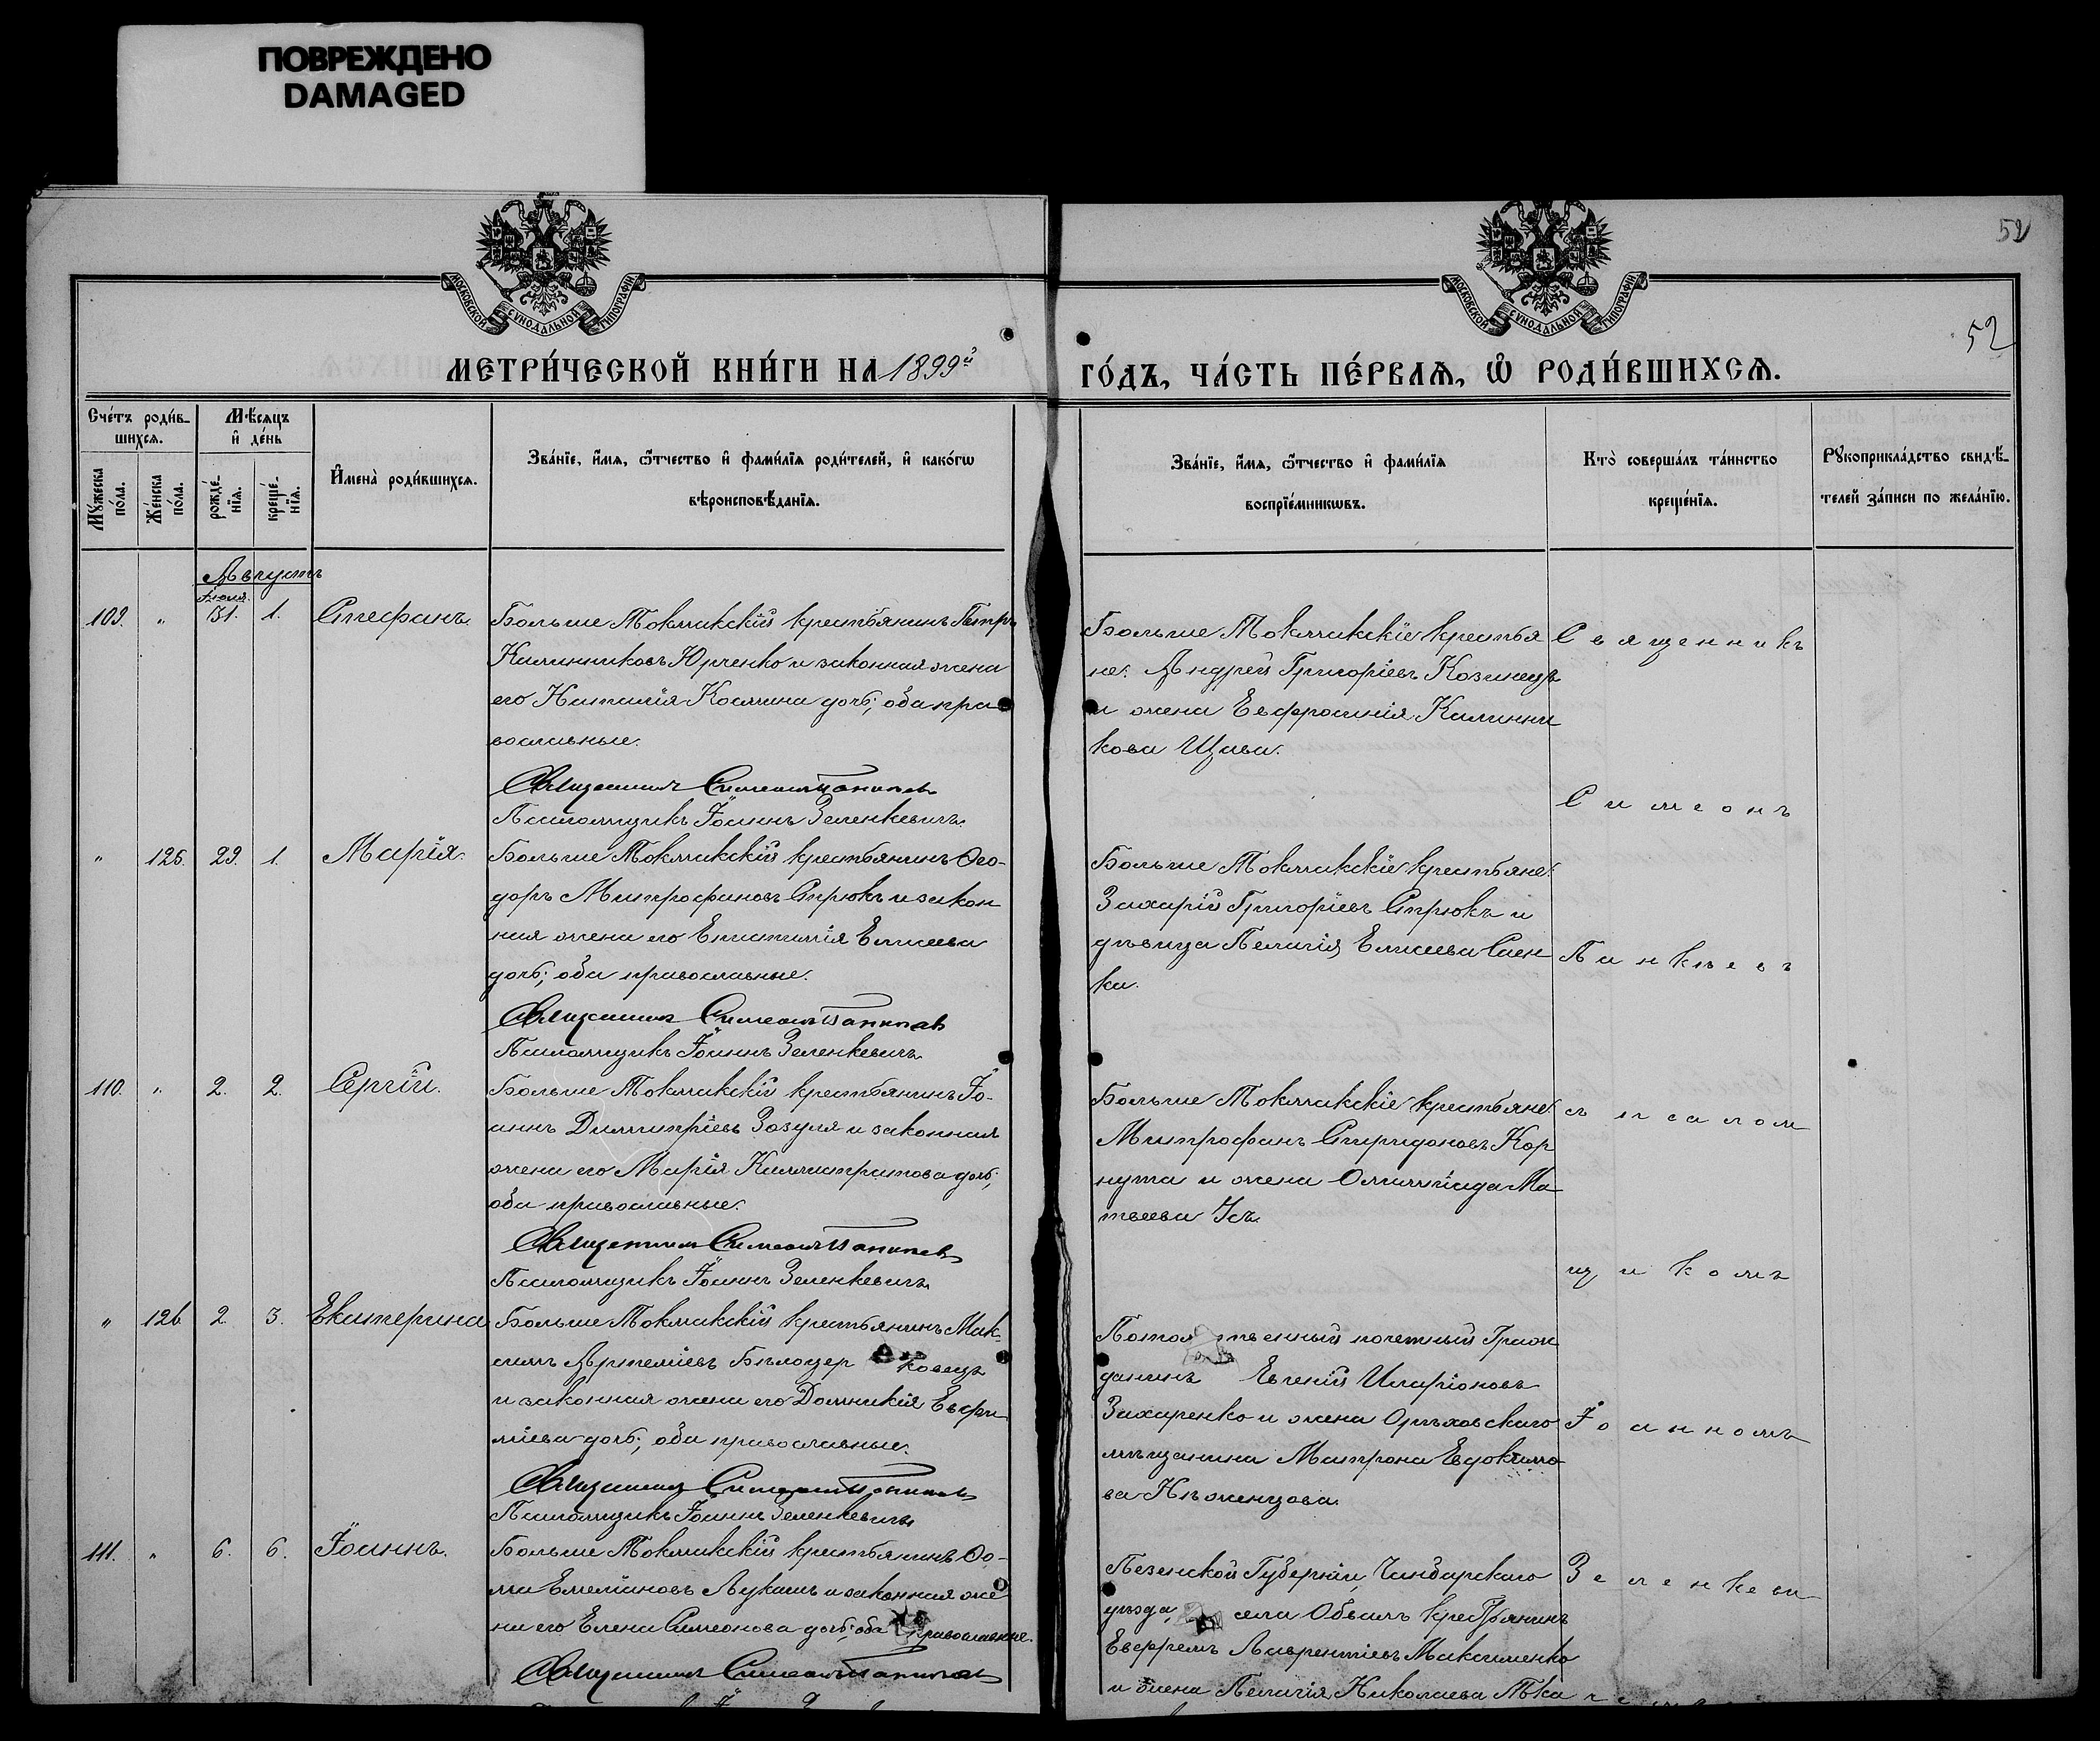 ПОВРЕЖДЕНО
DAMAGED
52
52
МОСКОВСКОЙ СУНОДАЛЬНОЙ ТИПОГРАФІИ
МОСКОВСКОЙ СУНОДАЛЬНОЙ ТИПОГРАФІИ
МЕТРИ́ЧЕСКОЙ КНИ́ГИ НА 1899й
ГО́ДЪ, ЧА́СТЬ ПЕ́РВАѦ, Ѡ҆ РОДИ́ВШИХСѦ.
Сче́тъ роди́в-
шихсѧ.
Мꙋ́жеска по́ла.
Же́нска по́ла.
Мѣ́сѧцъ
и҆ де́нь
рожде́-нїѧ.
креще́-нїѧ.
И҆мена̀ роди́вшихсѧ.
Зва́нїе, и҆́мѧ, ѻ҆́тчество и҆ фами́лїѧ роди́телей, и҆ како́гѡ
вѣроисповѣ́данїѧ.
Зва́нїе, и҆́мѧ, ѻ҆́тчество и҆ фами́лїѧ
воспрїе́мникѡвъ.
Кто̀ соверша́лъ та́инство
креще́нїѧ.
Рꙋкоприкла́дство свидѣ́-
телей за́писи по жела́нїю.
Августъ
Іюля
109. " 31. 1. Стефанъ.
Больше Токмакскій крестьянинъ Петръ
Калинниковъ Юрченко и законная жена
его Наталія Космина дочь; оба пра
вославные.
Священникъ Симеонъ
Псаломщикъ Іоаннъ Зеленкевичъ.
Больше Токмакскіе крестья
не: Андрей Григоріевъ Козинецъ
и жена Евфросинія Калинни
кова Щава.
" 125. 29. 1. Марія.
Больше Токмакскій крестьянинъ Ѳео-
доръ Митрофановъ Стрюкъ и закон
ная жена его Епистимія Елисеева
дочь; оба православные.
Священникъ Симеонъ
Псаломщикъ Іоаннъ Зеленкевичъ.
Больше Токмакскіе крестьяне:
Захарій Григоріевъ Стрюкъ и
дѣвица Пелагія Елисеева Саен
ка.
110. " 2. 2. Сергій.
Больше Токмакскій крестьянинъ Іо-
аннъ Димитріевъ Зозуля и законная
жена его Марія Каллистратова дочь;
оба православные.
Священникъ Симеонъ
Псаломщикъ Іоаннъ Зеленкевичъ.
Больше Токмакскіе крестьяне:
Митрофанъ Спиридоновъ Кор
нута и жена Олимпіада Ма
твеева Усъ.
" 126 2. 3. Екатерина
Больше Токмакскій крестьянинъ Мак-
симъ Артеміевъ Бѣлоцер ковецъ
и законная жена его Домникія Евфи
міева дочь; оба православные.
Священникъ Симеонъ
Псаломщикъ Іоаннъ Зеленкевичъ
Потом твенный почетный Граж
данинъ Евгеній Иларіоновъ
Захаренко и жена Орѣховскаго
мѣщанина Матрона Евдокимо
ва Нѣженцова.
111. " 6. 6. Іоаннъ.
Больше Токмакскій крестьянинъ Ѳо-
ма Емеліановъ Лукашъ и законная же
на его Елена Симеонова дочь; оба православные.
Священникъ Симеонъ
Пезенской Губерніи, Чембарскаго
уѣзда, села Обвалъ крестьянинъ
Евфремъ Лаврентіевъ Максименко
и жена Пелагія Николаева
Священникъ
Симеонъ
Панкѣевъ
съ псалом
щикомъ
Іоанномъ
Зеленкеви